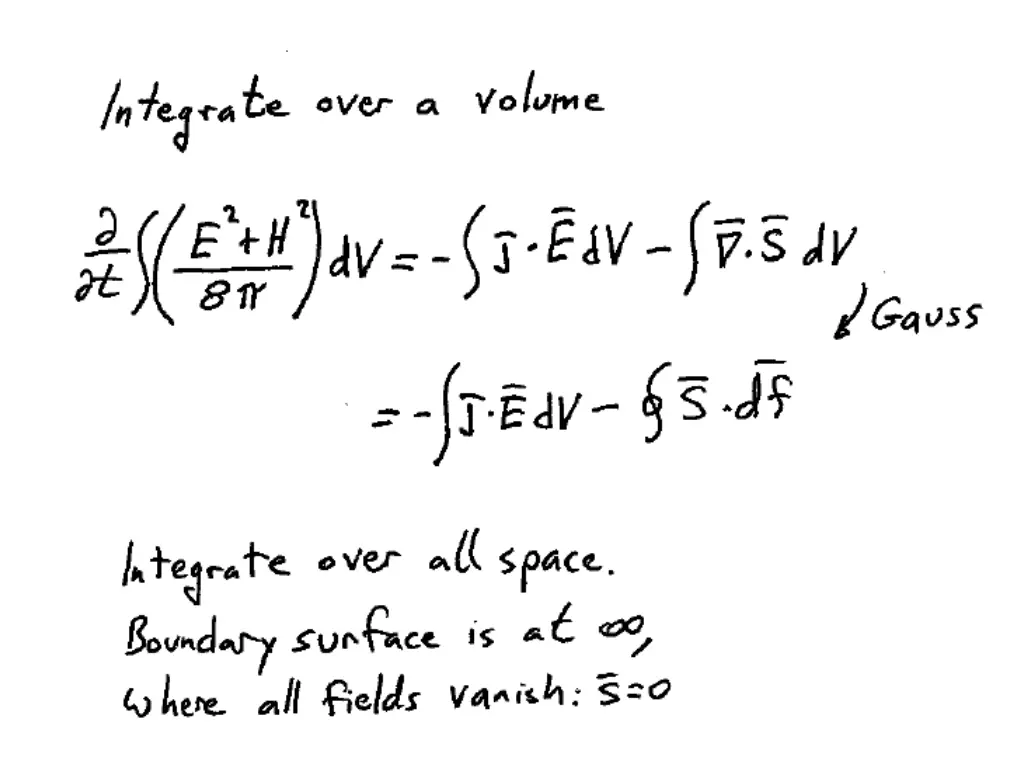 Integrate over a volume
∂/∂t ∫((E²+H²)/8π) dV = - ∫ j̄·Ē dV - ∫ ∇̄·S̄ dV
↙ Gauss
= - ∫ j̄·Ē dV - ∮ S̄·df̄
Integrate over all space.
Boundary surface is at ∞,
where all fields vanish: S̄=0